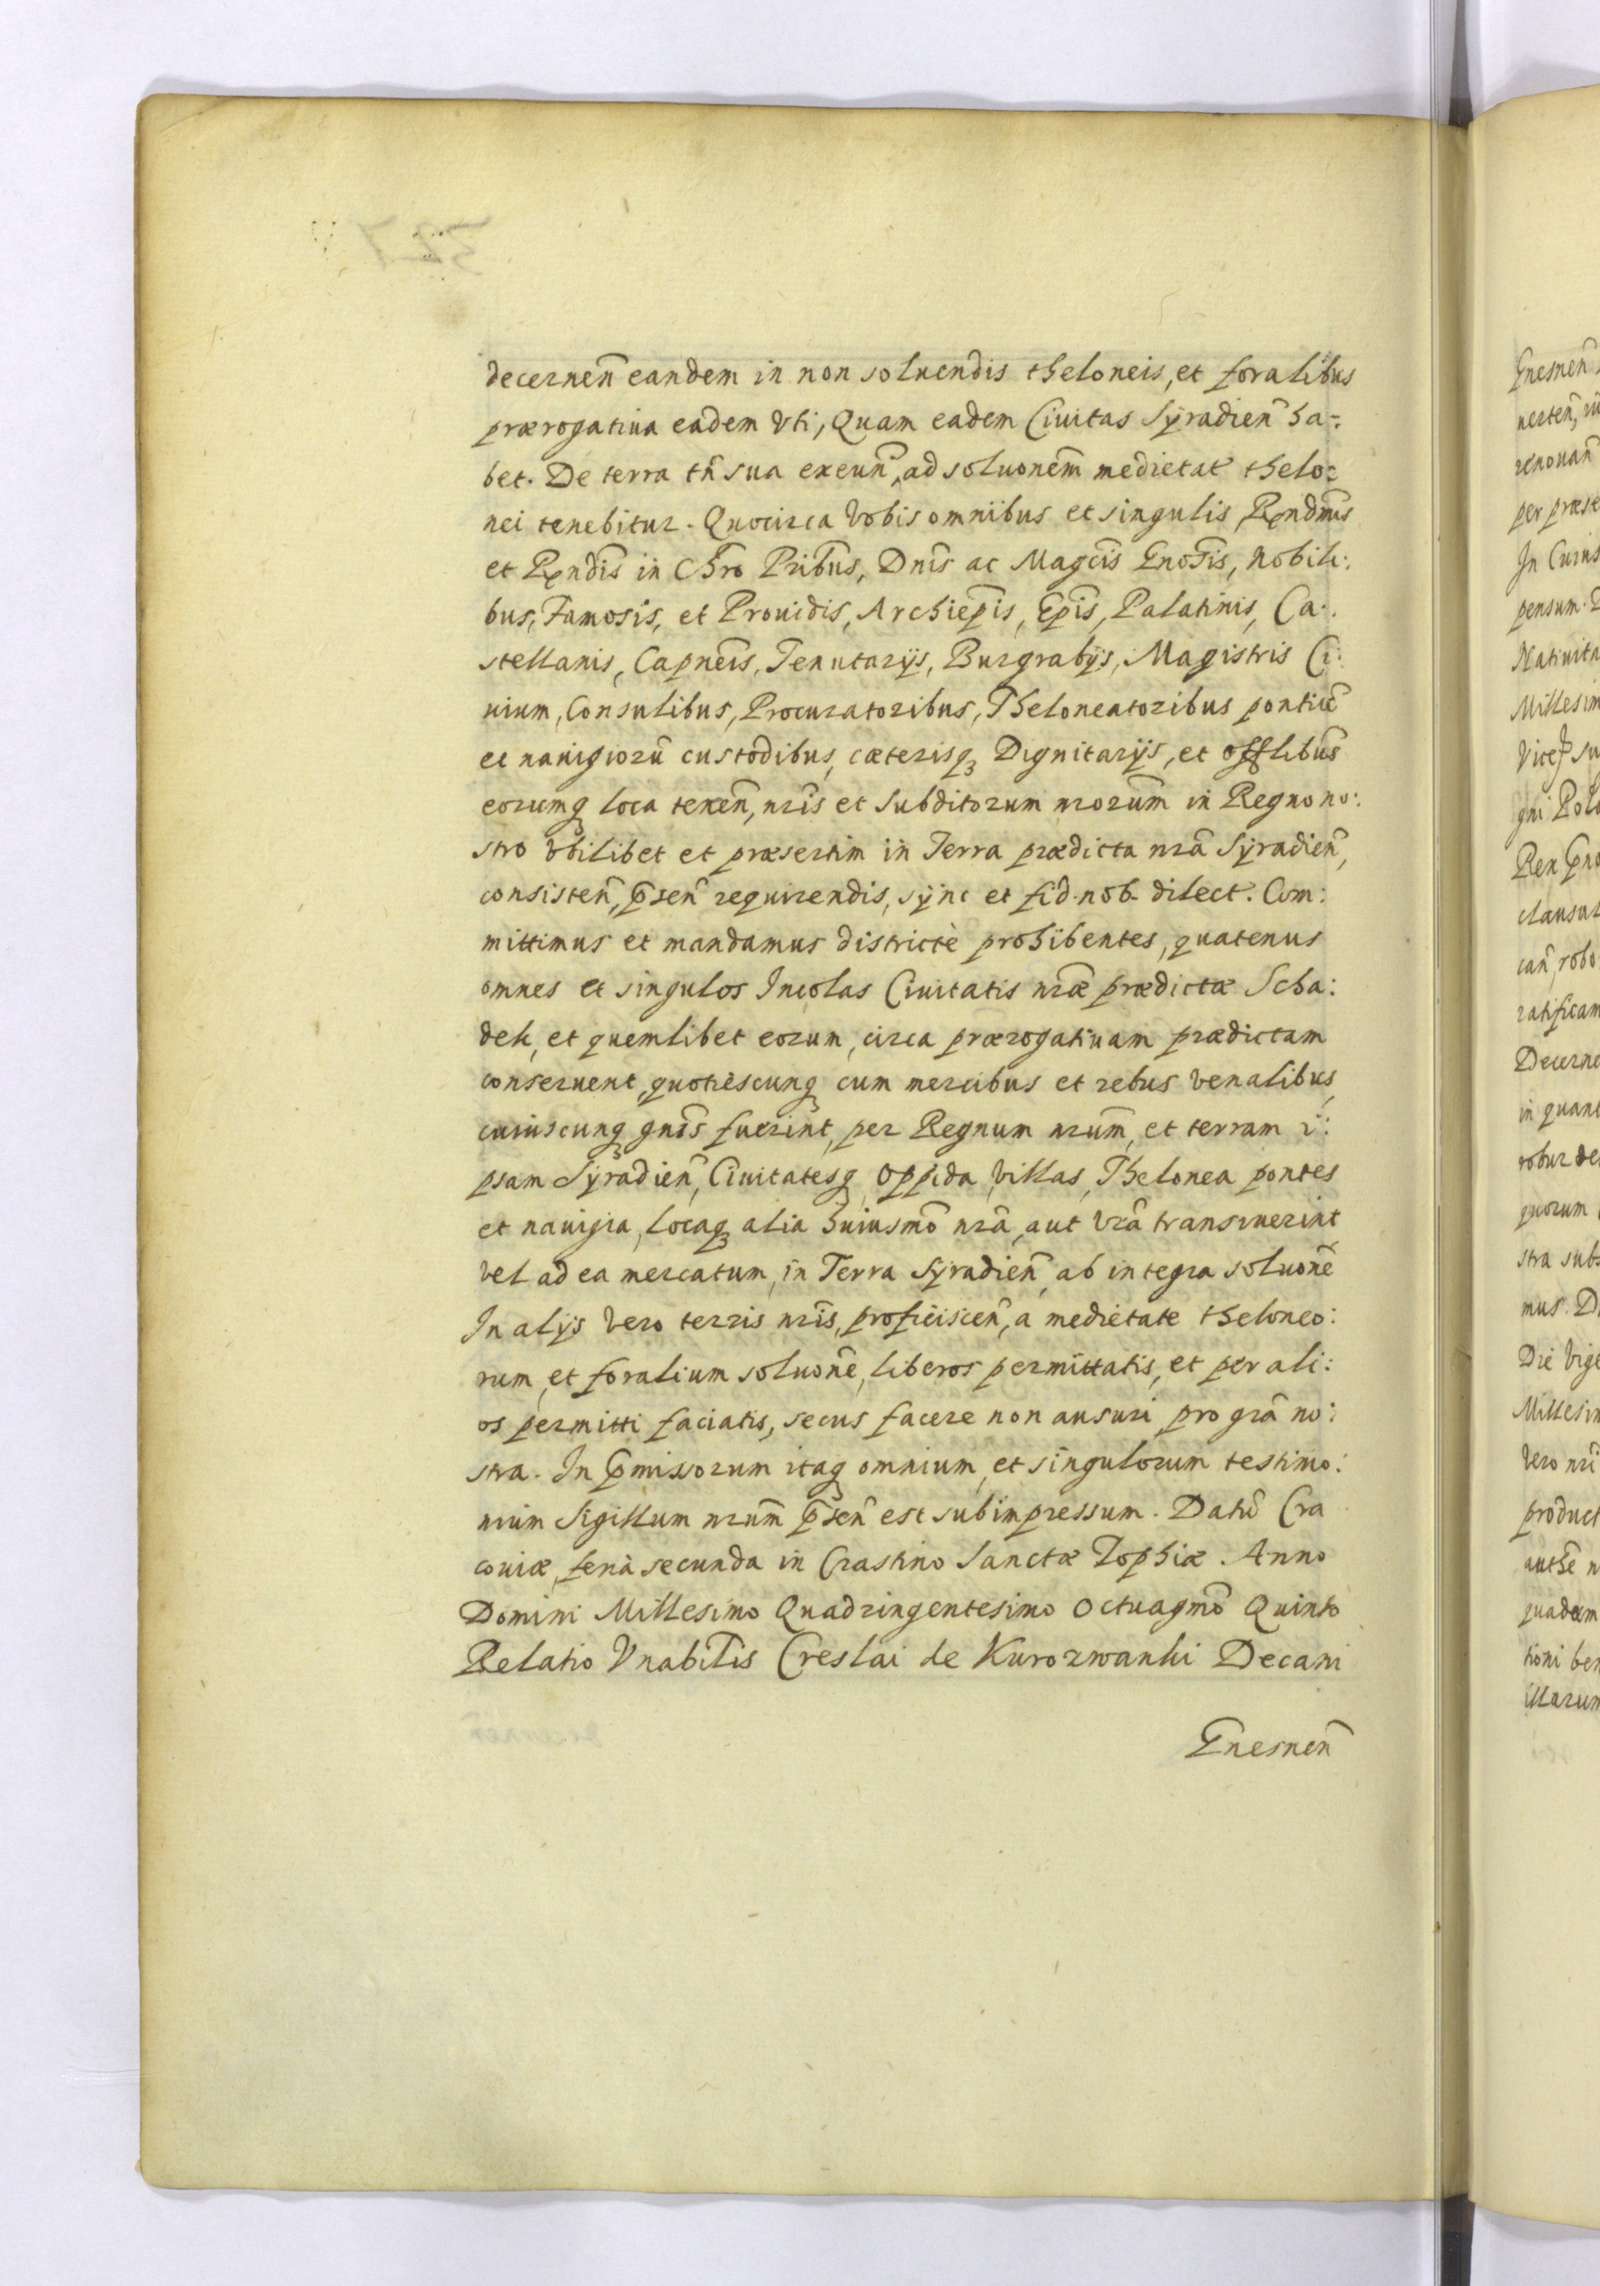 decernen̄ eandem in non soluendis theloneis, et foralibus
prærogatiua eadem Vti, Quam eadem Ciuitas Syradien̄ ha=
bet. De terra tn̄ sua exeun̄, ad soluonem̄ medietat thelo=
nei tenebitur. Quocirca Vobis omnibus et singulis Rendm̄is
et Rendis̄ in Chr̄o Pribus̄, Dnis̄ ac Magcis̄ Gnosis̄, Nobili:
bus, Famosis, et Prouidis, Archiep̄is, Ep̄is, Palatinis, Ca:
stellanis, Capneis̄, Tenutarijs, Burgrabijs, Magistris Ci:
uium, Consulibus, Procuratoribus, Theloneatoribus pontiū
et nauigiorū custodibus, cæterisq₃ Dignitarijs, et offlibus̄
eorumq loca tenen̄, nris̄ et Subditorum nrorum̄ in Regno no:
stro Vbilibet et præsertim in Terra prædicta nrā Syradien̄,
consisten̄, p̄sen̄ requirendis, sync et fid. nob. dilect. Com:
mittimus et mandamus districtè prohibentes, quatenus
omnes et singulos Incolas Ciuitatis nrǣ prædictæ Scha:
dek, et quemlibet eorum, circa prærogatiuam prædictam
conseruent, quotiescunq₃ cum mercibus et rebus venalibus,
cuiuscunq₃ gnis̄ fuerint, per Regnum nrum̄, et terram i:
psam Syradien̄, Ciuitatesq, Oppida, Villas, Thelonea pontes
et nauigia, locaq₃ alia huiusmō nrā, aut Vrā transiuerint
vel ad ea mercatum, in Terra Syradien̄, ab integra soluonē
In alijs Vero terris nris̄, proficiscen̄, a medietate theloneo:
rum, et foralium soluonē, liberos permittatis, et per ali:
os permitti faciatis, secus facere non ausuri, pro grā no:
stra. In p̄missorum itaq₃ omnium, et singulorum testimo:
nium Sigillum nrum̄ p̄sen̄ est subimpressum. Datū Cra
couiæ, feria secunda in Crastino Sanctæ Zophiæ. Anno
Domini Millesimo Quadringentesimo Octuagmō Quinto
Relatio Vnabilis̄ Creslai de Kurozwanki Decani
Gnesnen̄